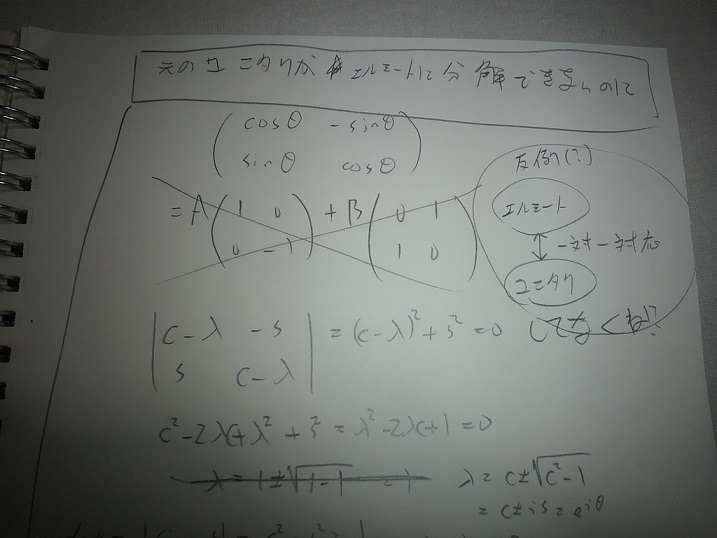 元のユニタリがエルミートに分解できないのに
( cosθ -sinθ
sinθ cosθ )
= A ( 1 0
0 -1 ) + B ( 0 1
1 0 )
反例(?)
エルミート
↕ 一対一対応
ユニタリ
してなくね!?
| c-λ -s
s c-λ | = (c-λ)² + s² = 0
c² - 2λc + λ² + s² = λ² - 2λc + 1 = 0
λ = 1 ± √1-1 = 1
λ = c ± √c²-1
= c ± is = e^iθ